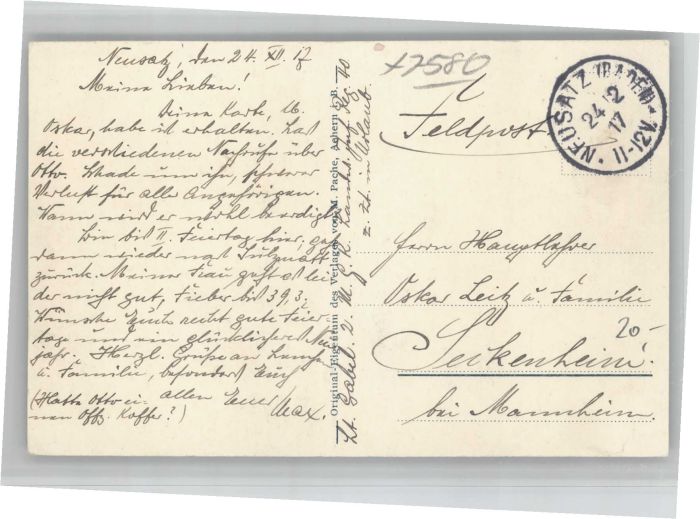 Neusatz, den 24. XII. 17
Meine Lieben!
Deine Karte, lb.
Oskar, habe ich erhalten. Las
die verschiedenen Nachrufe über
Otto. Schade um ihn, schwerer
Verlust für alle Angehörigen.
Wann wird er wohl beerdigt
Bin bis II. Feiertag hier, geh
dann wieder nach Sulzmatt
zurück. Meiner Frau geht es lei
der nicht gut, Fieber bis 39,3.
Wünsche Euch recht gute Feier
tage und ein glückliches Neu
jahr. Herzl. Grüße an
u. Familie, besonders Euch
allen Euer
Max.
(Hatte Otto ei-
nen Off. Koffer?)
Original-Eigentum des Verlages von M. Pache, Achern i. B.
Lt. Gabel. 2. M. G. K. Landst. Inf. Reg. 70
z. Zt. in Urlaub
+7580
Feldpost
NEUSATZ (BADEN)
24 12
17
11-12V
Herrn Hauptlehrer
Oskar Leitz u. Familie
20-
Seckenheim
bei Mannheim.